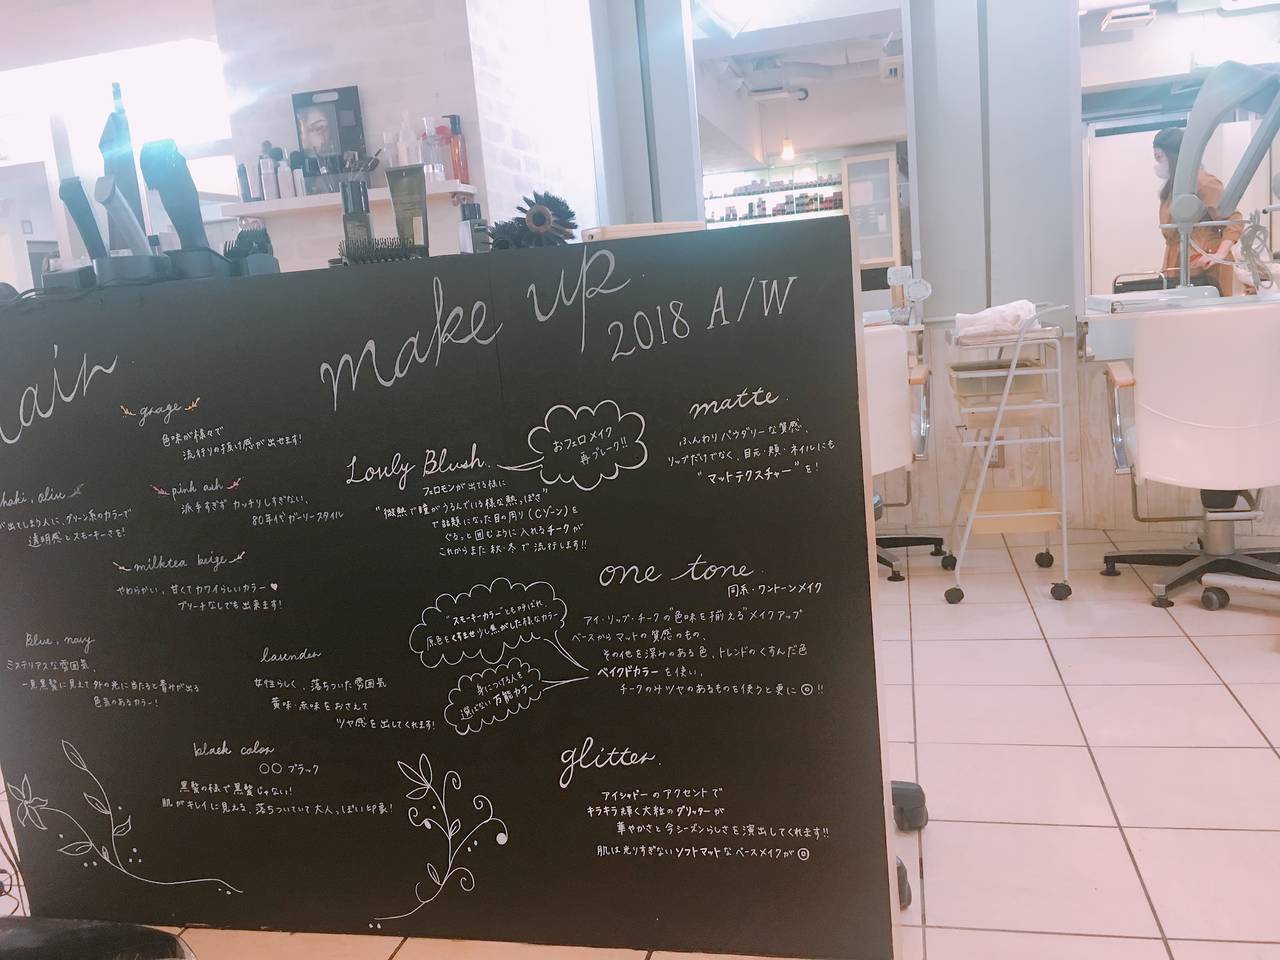 make up
2018 A/W
grage
色味が様々で
流行りの抜け感が出せます!
が出てしまう人に、グリーン系のカラーで
透明感とスモーキーさを!
pink ash
派手すぎず カッチリしすぎない、
80年代ガーリースタイル
milktea beige
やわらかい、甘くてカワイらしいカラー♥
ブリーチなしでも出来ます!
Blue, navy
ミステリアスな雰囲気、
一見黒髪に見えて外の光に当たると青みが出る
色気のあるカラー!
lavender
女性らしく、落ちついた雰囲気
黄味・赤味をおさえて
ツヤ感を出してくれます!
black color
○○ブラック
黒髪の様で黒髪じゃない!
肌がキレイに見える、落ちついていて大人っぽい印象!
Lovly Blush
おフェロメイク
再ブレーク!!
フェロモンが出てる様に
"微熱で瞳がうるんでいる様な熱っぽさ"
で話題になった目の周り(Cゾーン)を
ぐるっと囲むように入れるチークが
これからまた秋・冬で流行します!!
matte
ふんわりパウダリーな質感、
リップだけでなく、目元・頬・ネイルにも
"マットテクスチャー"を!
one tone
同系・ワントーンメイク
アイ・リップ・チークの"色味を揃える"メイクアップ
ベースからマットの質感のもの、
その他を深みのある色、トレンドのくすんだ色
ベイクドカラーを使い、
チークのみツヤのあるものを使うと更に◎!!
"スモーキーカラー"とも呼ばれ、
原色をくすませ少し焦がした様なカラー
身につける人を
選ばない万能カラー
glitter
アイシャドーのアクセントで
キラキラ輝く大粒のグリッターが
華やかさと今シーズンらしさを演出してくれます!!
肌は光りすぎないソフトマットなベースメイクが◎